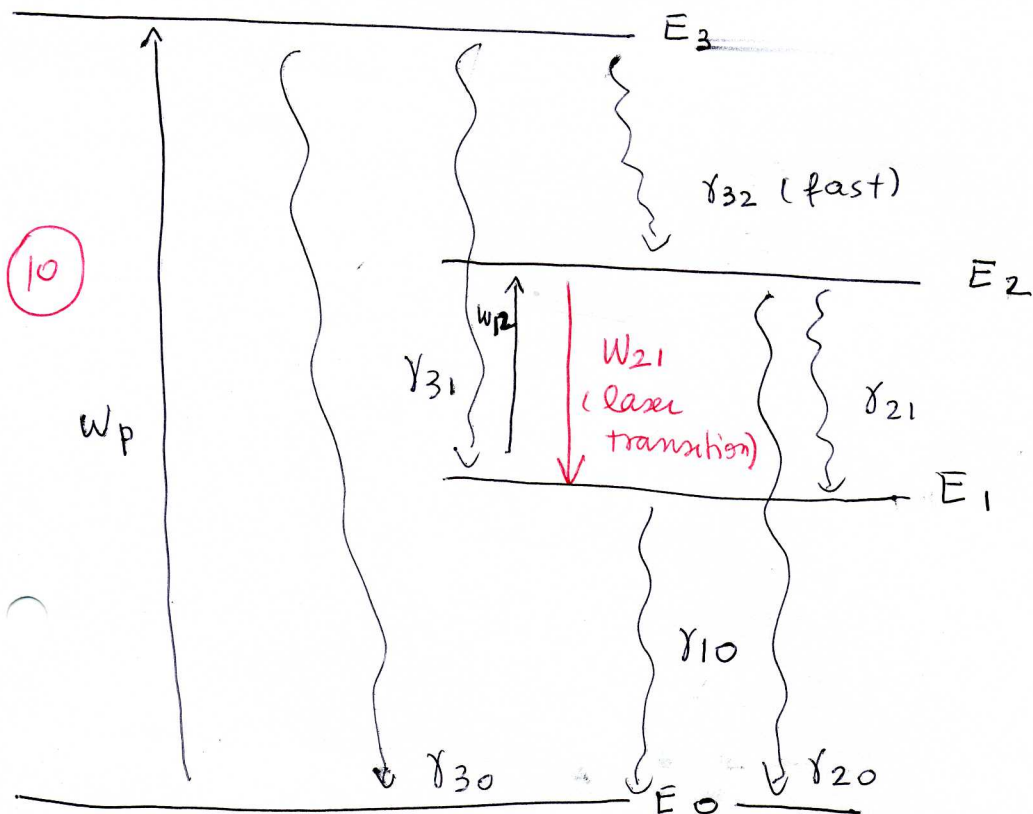 E3
γ32 (fast)
10
E2
W12
W21
(laser
transition)
γ31
γ21
Wp
E1
γ10
γ30
E0
γ20